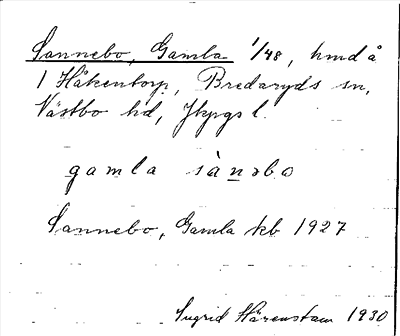 Sannebo, Gamla 1/48, hmd å
1 Håkentorp, Bredaryds sn,
Västbo hd, Jkpgs l.
gamla sànəbo
Sannebo, Gamla kb 1927
Ingrid Härenstam 1930